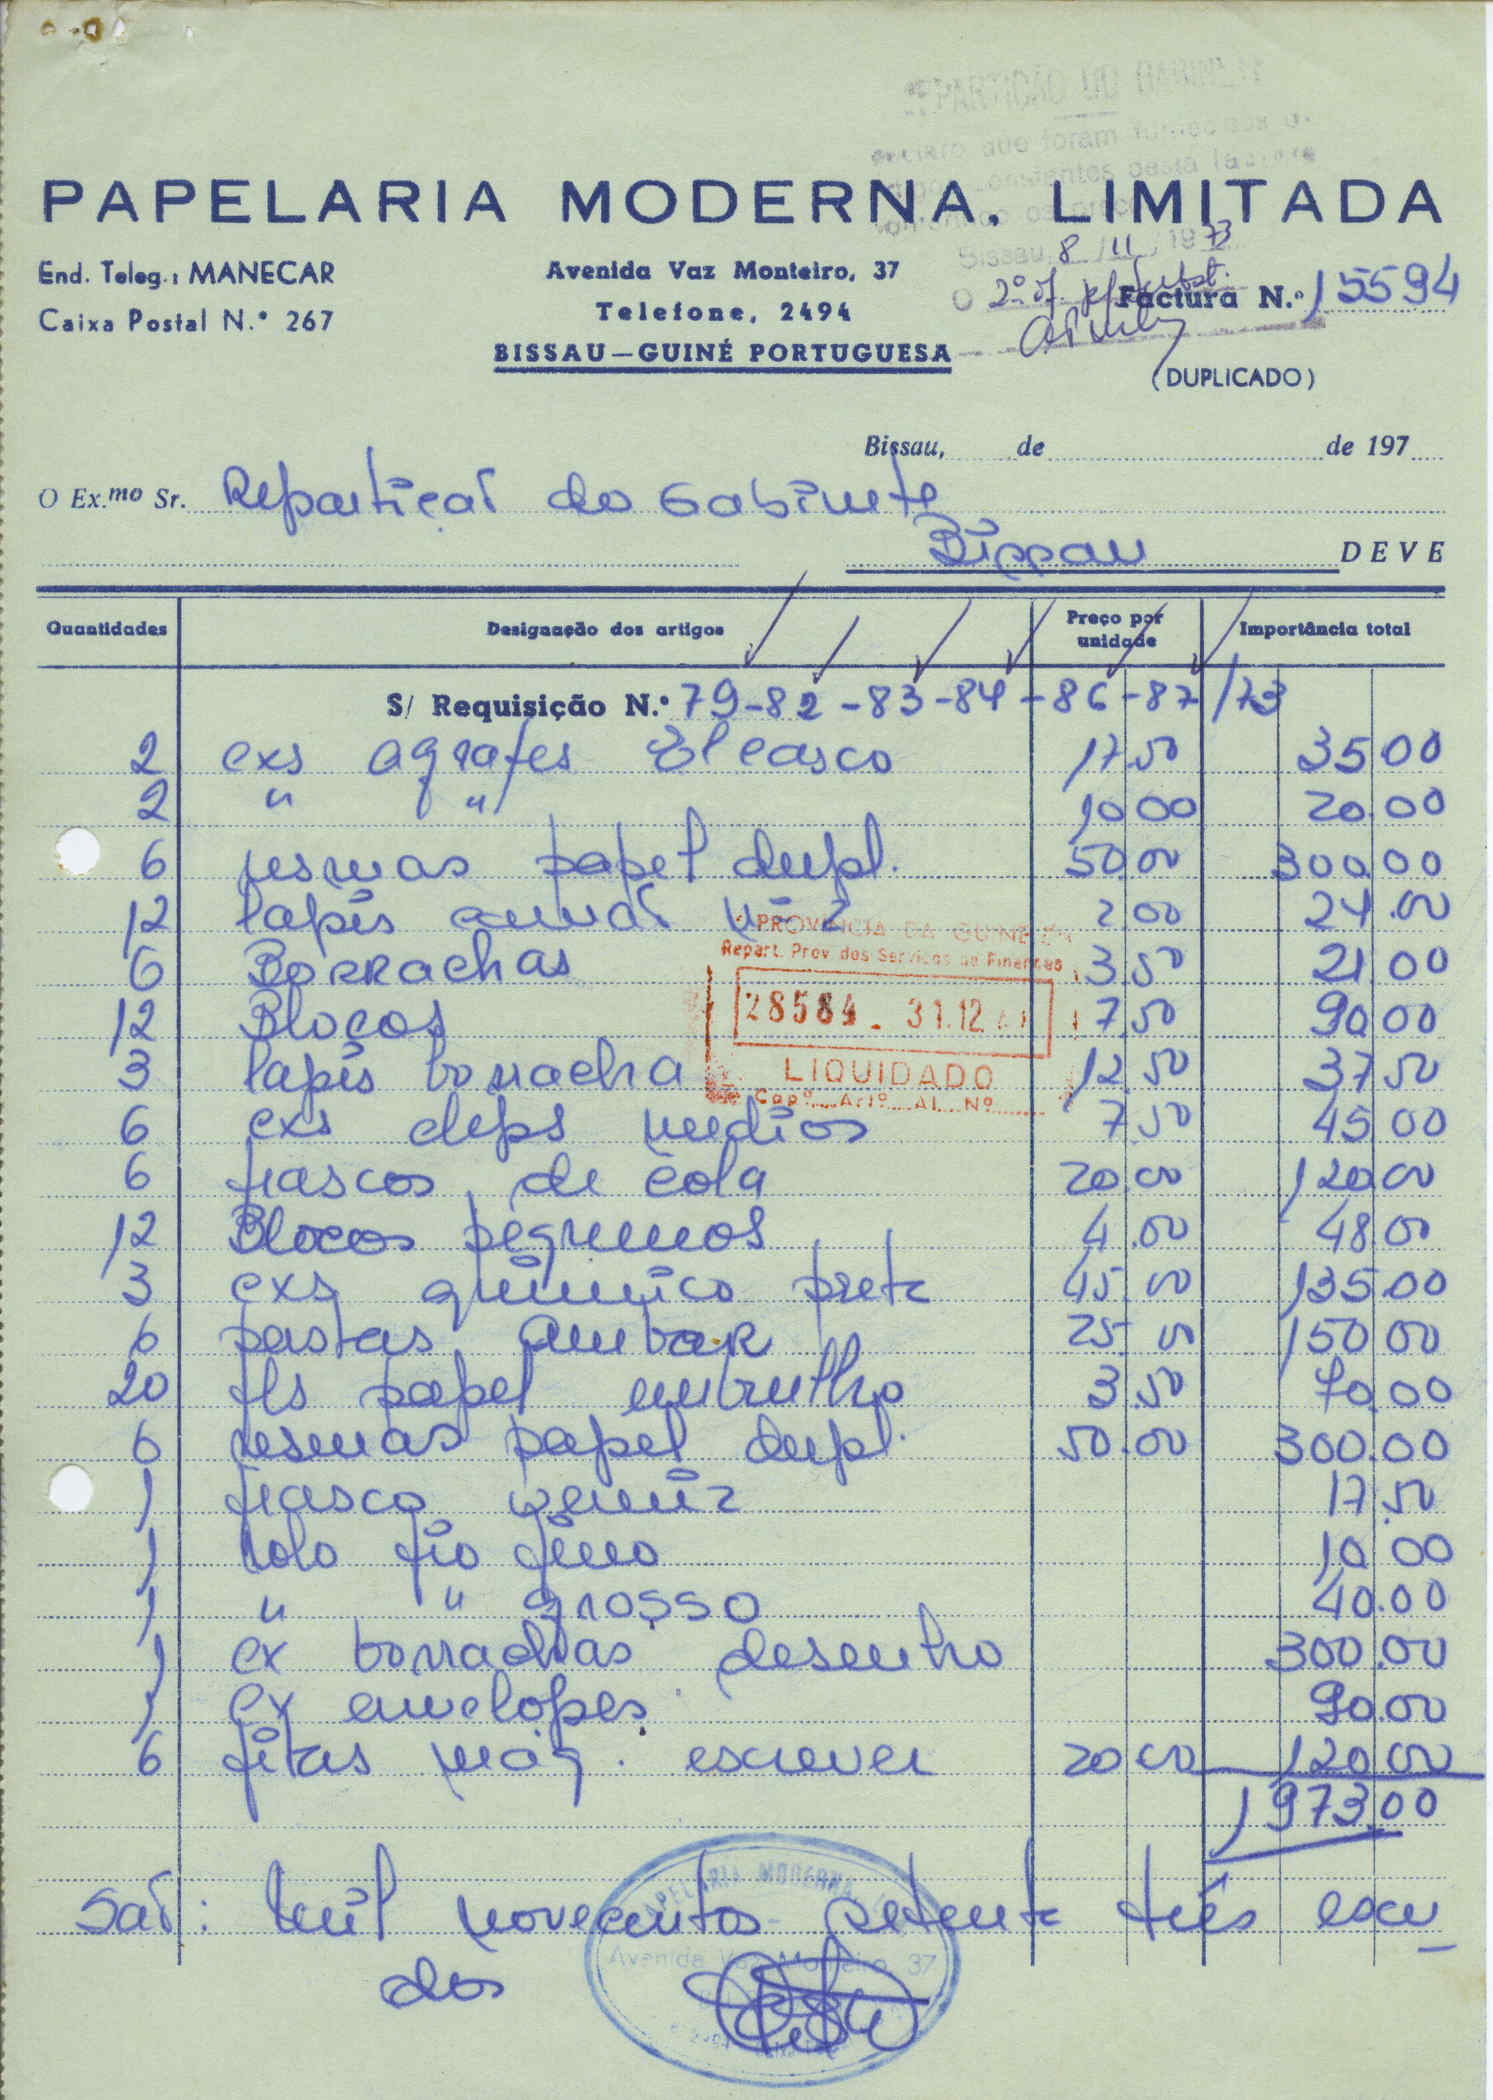 REPARTIÇÃO DO GABINETE
que foram fornecidos
constantes desta
Bissau, 8 / 11 / 1973
PAPELARIA MODERNA, LIMITADA
End. Teleg.: MANECAR
Caixa Postal N.º 267
Avenida Vaz Monteiro, 37
Telefone, 2494
BISSAU—GUINÉ PORTUGUESA
O 2º
Factura N.º 15594
(DUPLICADO)
Bissau, de de 197
O Ex.mo Sr. Repartição do Gabinete
Bissau DEVE
Quantidades Designação dos artigos Preço por unidade Importância total
S/ Requisição N.º 79-82-83-84-86-87/73
2 cxs agrafes El Casco 17.50 35.00
2 " " 10.00 20.00
6 resmas papel dupl. 50.00 300.00
12 lapis carvão nº 2 2.00 24.00
6 Borrachas 3.50 21.00
12 Blocos 7.50 90.00
3 lapis borracha 12.50 37.50
6 cxs clips medios 7.50 45.00
6 frascos de cola 20.00 120.00
12 Blocos pequenos 4.00 48.00
3 cxs quimico preto 45.00 135.00
6 pastas Ambar 25.00 150.00
20 fls papel embrulho 3.50 70.00
6 resmas papel dupl. 50.00 300.00
1 frasco verniz 17.50
1 rolo fio fino 10.00
1 " " grosso 40.00
1 cx borrachas desenho 300.00
1 cx envelopes 90.00
6 fitas máq. escrever 20.00 120.00
1973.00
PROVINCIA DA GUINÉ
Repart. Prov. dos Serviços de Finanças
28584 - 31.12
LIQUIDADO
Capº Artº Al. Nº
São: mil novecentos setenta três escu_
dos
PAPELARIA MODERNA
Avenida Vaz Monteiro, 37